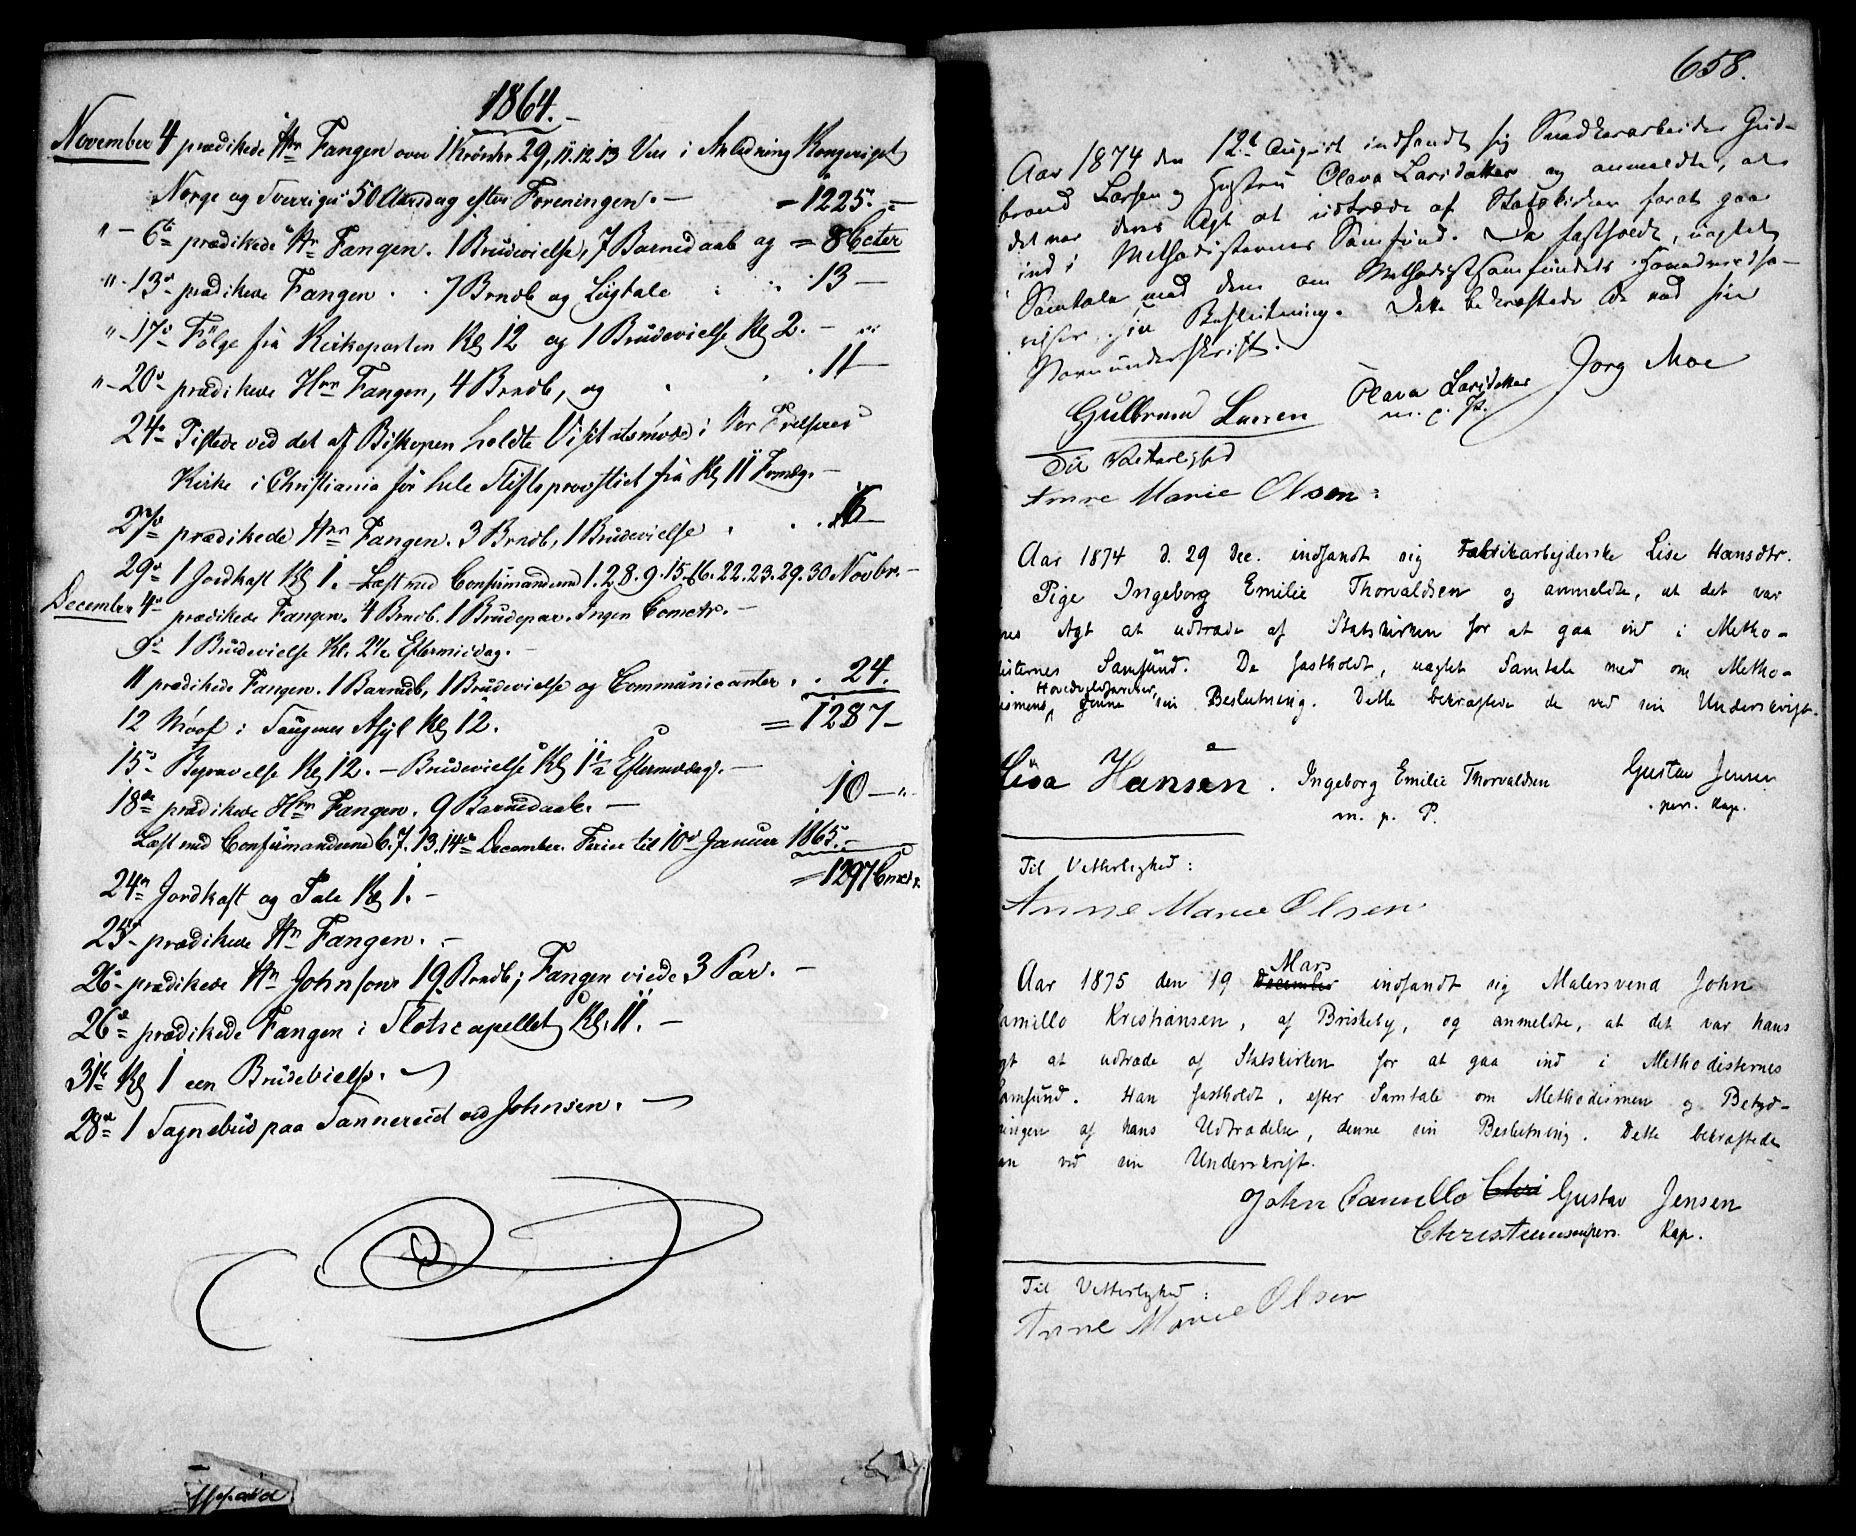 1864.
November 4 prædikede Hrr Fangen over 1 Krønkr 29, 11.12.13 Vers i Anledning Kongeriget
Norge og Sverrigs 50 Aarsdag efter Foreningen. — = 1225. =
" — 6te prædikede Hr Fangen. 1 Brudevielse, 7 Barnedaab og = 8 Cater
" - 13de prædikede Fangen . . 7 Brndb og Ligtale . 13 —
" - 17de Følge fra Kirkeporten Kl 12 og 1 Brudevielse Kl 2. —
" - 20de prædikede Hrr Fangen, 4 Brndb, og . . . 11 —
24de Tilstede ved det af Biskopen holdte Visitatsmøde i Vor Frelsers
Kirke i Christiania for hele Stiftsprovstiet fra Kl 11 Formdg. —
27de prædikede Hrr Fangen. 3 Brndb, 1 Brudevielse . . .
29de 1 Jordkast Kl 1. Læst med Confirmanderne 1. 2. 8. 9. 15. 16. 22. 23. 29. 30 Novbr. —
December 4de prædikede Fangen. 4 Brndb. 1 Brudepar. Ingen
9de 1 Brudevielse Kl. 2½ Eftermiddag. —
11 prædikede Fangen. 1 Barndb, 1 Brudevielse og Communicanter . . 24.
12 i Asyl Kl 12. = 1287 —
15de Begravelse Kl 12. — Brudevielse Kl 1½ Eftermiddag. —
18de prædikede Hrr Fangen. 9 Barnedaab. — 10 — "
Læst med Confirmanderne 6. 7. 13. 14de December. Ferier til 10de Januar 1865. —
= 1297
24de Jordkast og Tale Kl 1. —
25de prædikede Hr Fangen. . —
26de prædikede Hr Johnson 19 Brndb; Fangen viede 3 Par. —
26de prædikede Fangen i Slotscapellet Kl. 11. —
31te Kl 1 een Brudevielse. —
28de 1 Sognebud paa ved Johnsen. —
658.
Aar 1874 den 12te August indfandt sig Snedkerarbeider Gud-
brand Larsen og Hustru Olava Larsdatter og anmeldte, at
det var deres Agt at udtræde af Statskirken forat gaa
ind i Methodisternes Samfund. De fastholdt, uagtet
Samtale med dem om Methodistsamfundets Hovedvildfa-
relser, sin Beslutning. Dette bekræftede de ved sin
Navnunderskrift.
Gulbrand Larsen Olava Larsdatter Jørg Moe
m. p. P.
Til Vitterlighed
Anne Marie Olsen:
Aar 1874 d. 29 Dec. indfandt sig Fabrikarbejderske Lise Hansdtr.
Pige Ingeborg Emilie Thorvaldsen og anmeldte, at det var
nes Agt at udtræde af Statskirken for at gaa ind i Metho-
disternes Samfund. De fastholdt, uagtet Samtale med om Metho-
dismens Hovedvildfarelser, denne sin Beslutning. Dette bekræftede de ved sin Underskrift.
Lisa Hansen. Ingeborg Emilie Thorvaldsen Gustav Jensen
m. p. P. pers. Kap.
Til Vitterlighed:
Anne Marie Olsen.
Mars
Aar 1875 den 19 December indfandt sig Malersvend John
Camillo Kristiansen, af Briskeby, og anmeldte, at det var hans
Agt at udtræde af Statskirken for at gaa ind i Methodisternes
Samfund. Han fastholdt, efter Samtale om Methodismen og Betyd-
ningen af hans Udtrædelse, denne sin Beslutning. Dette bekræftede
han ved sin Underskrift.
John Camillo Chri Gustav Jensen
Christiansen pers. Kap.
Til Vitterlighed:
Anne Marie Olsen